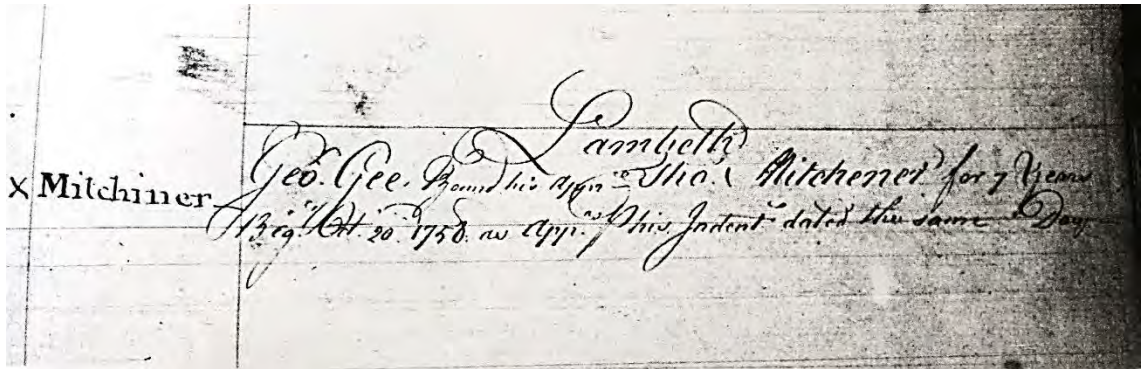 Lambeth
x Mitchiner Geo. Gee. Bound his App.ce Tho.s Mitchener for 7 Years
Beg.g Oct. 20. 1758. as App.rs p his Indent.re dated the same Day